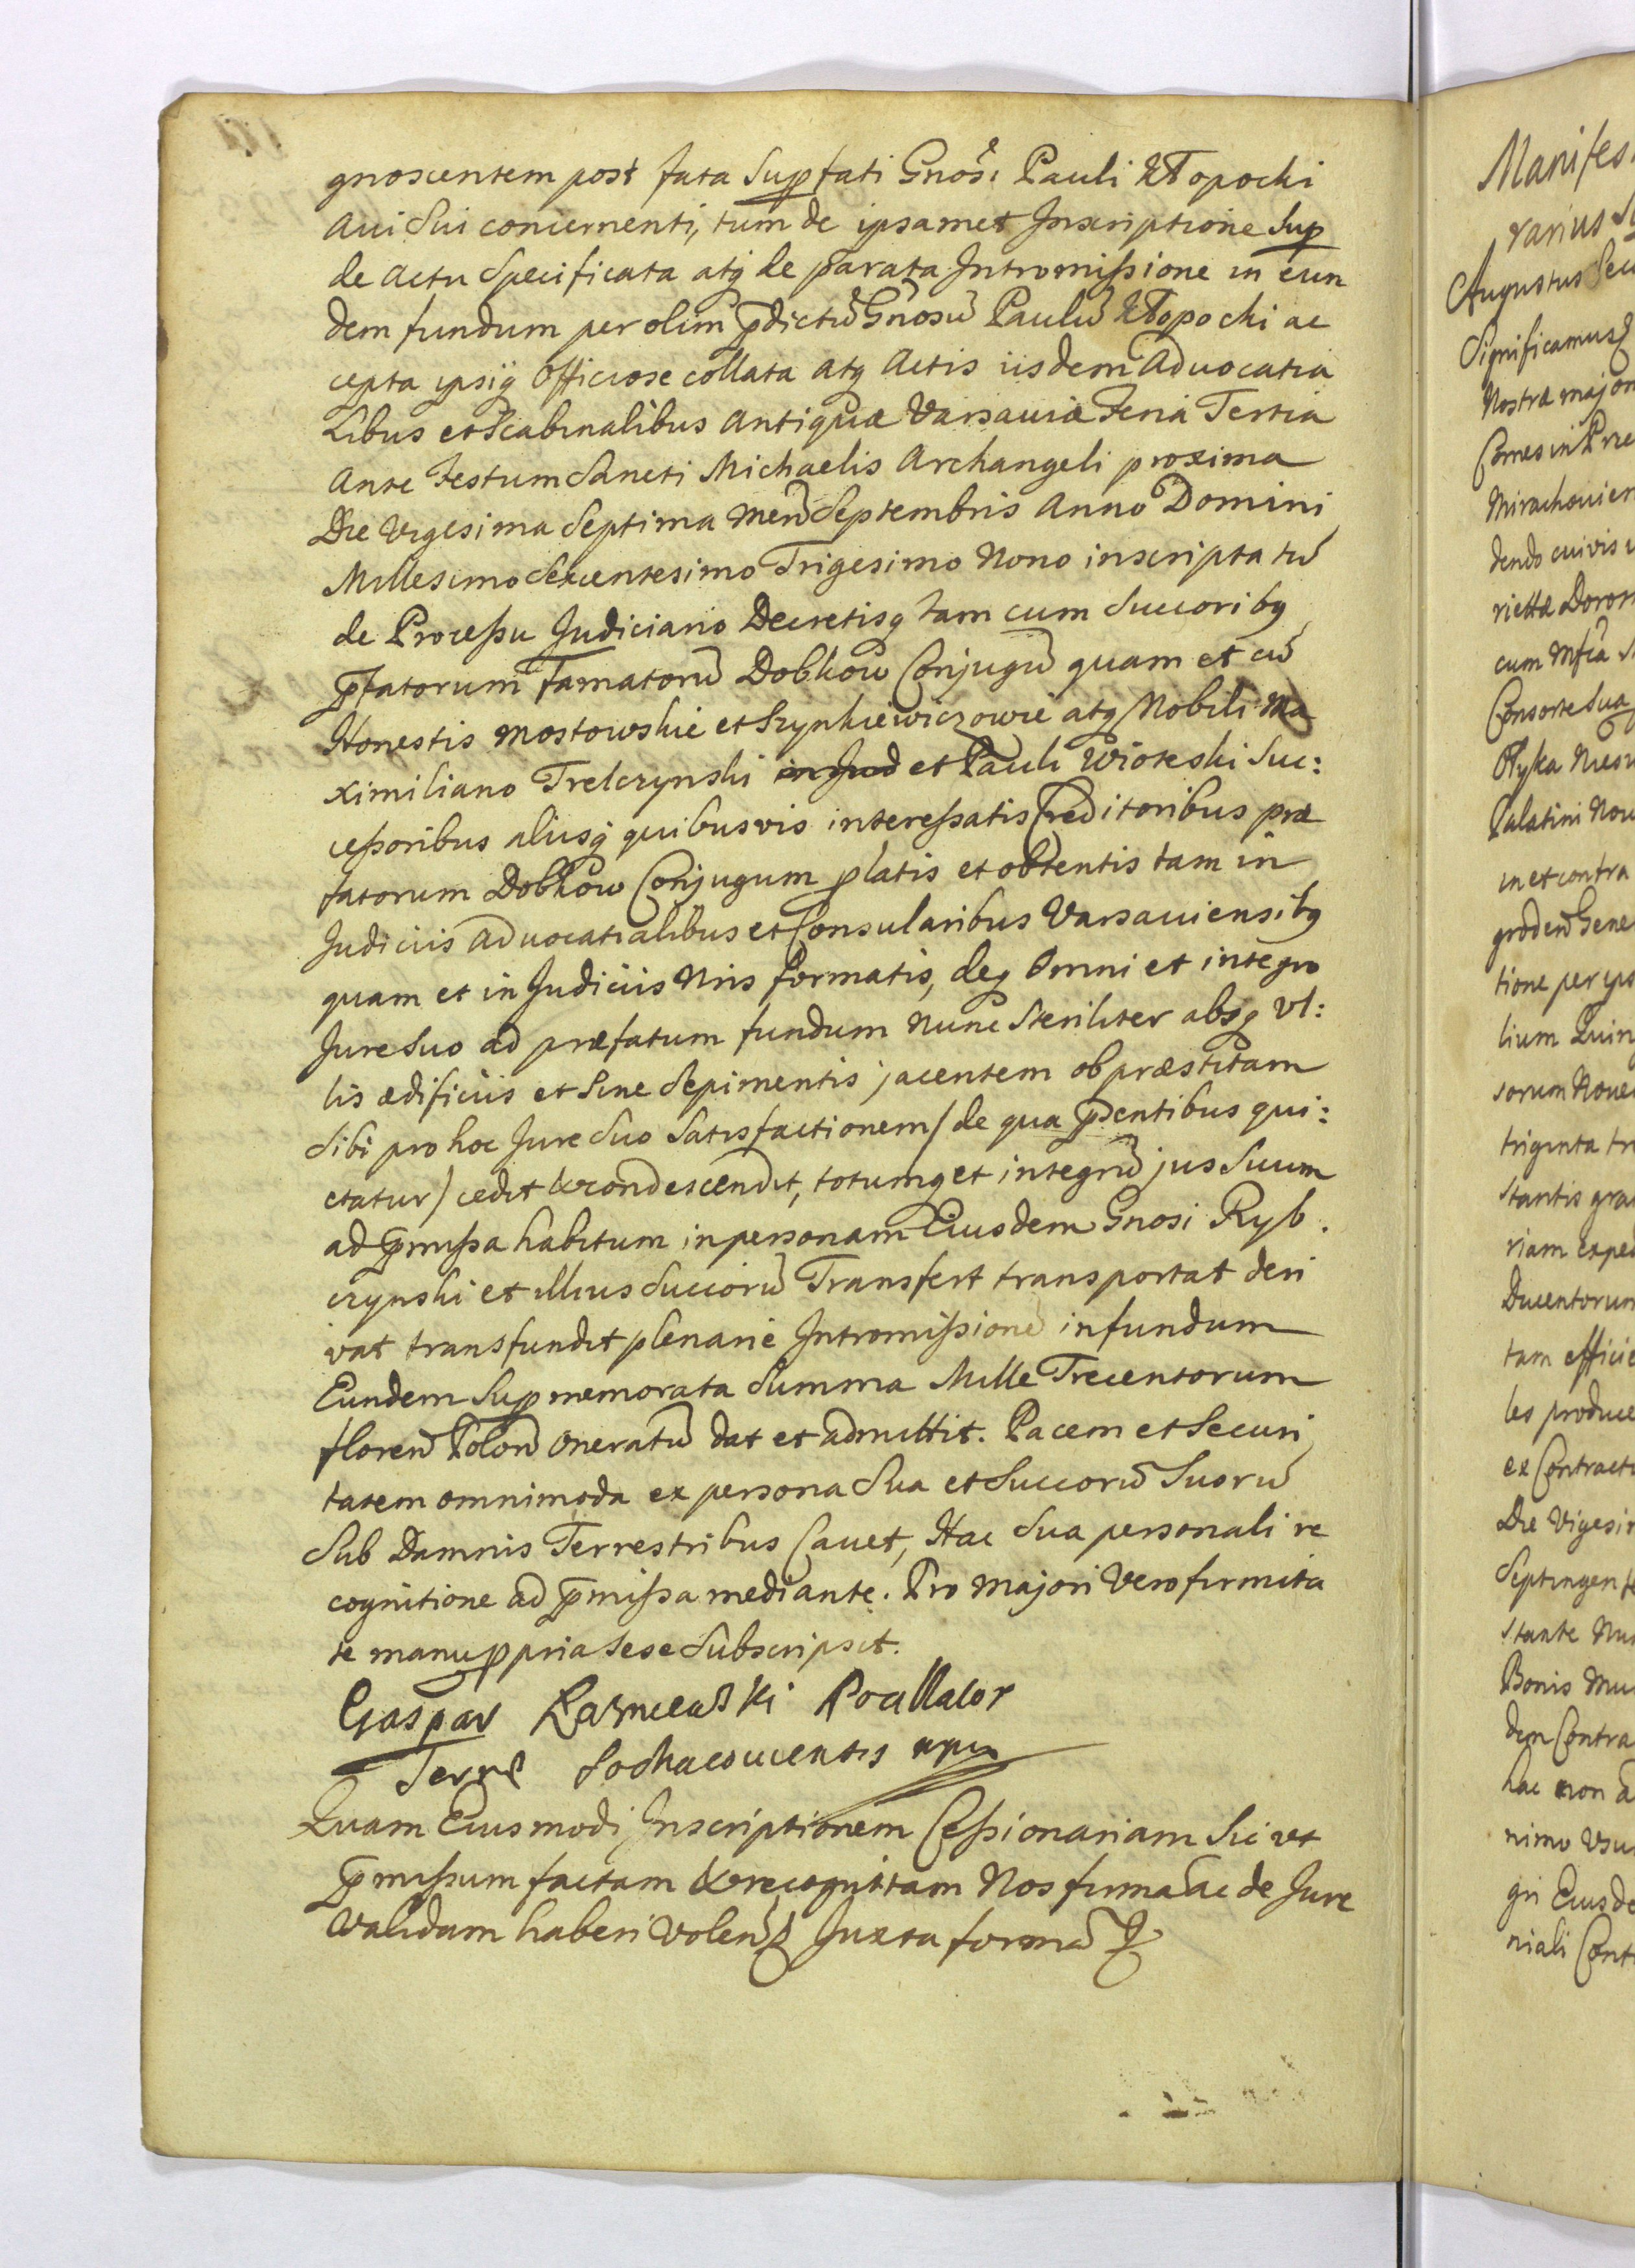 gnoscentem post fata Suprafati Gnosi Pauli Kłopocki
Aui Sui concernenti, tum de ipsamet Inscriptione Sup
de actu Specificata atq de parata Intromissione in eun
dem fundum per olim pdictũ Gnosũ Paulũ Kłopocki ac
cepta ipsiq Officiose collata atq Actis iisdem Aduocatia
Libus et Scabinalibus Antiquæ Varsauiæ Feria Tertia
Ante Festum Sancti Michaelis Archangeli proxima
Die Vigesima Septima Men̄ Septembris Anno Domini
Millesimo Sexcentesimo Trigesimo Nono inscripta tũ
de Processu Judiciario Decretisq tam cum Succoribq
pfatorum Famatorũ Dobkow Conjugũ quam et cũ
Honestis Mostowskie et Szynkiewiczowie atq Nobili Ma
ximiliano Trelczynski et Pauli Wioteski Suc:
cessoribus aliisq quibusvis interessatis Creditoribus præ
fatorum Dobkow Conjugum platis et obtentis tam in
Judiciis Aduocatialibus et Consularibus Varsauiensibq
quam et in Judiciis Nris formatis, deq Omni et integro
Jure Suo ad præfatum fundum Nunc Steriliter absq vl:
lis ædificiis et Sine Sepimentis jacentem ob præstitam
Sibi pro hoc Jure Suo Satisfactionem / de qua pntibus qui:
etatur / cedit & condescendit, totumq et integrũ jus Suum
ad pmissa habitum in personam Eiusdem Gnosi Ryb.
czynski et illius Succorũ Transfert transportat deri
vat transfundit plenarie Intromissionē in fundum
Eundem Sup memorata Summa Mille Trecentorum
floren̄ Polon̄ oneratũ dat et admittit. Pacem et Securi
tatem omnimoda ex persona Sua et Succorũ Suorũ
Sub Damnis Terrestribus Cauet, Hac Sua personali re
cognitione ad pmissa mediante. Pro Majori Vero firmita
te manu ppria Sese Subscripsit.
Gaspar Pocillator
Terræ Sochaccouiensis mpa
Quam Eiusmodi Inscriptionem Cessionariam Sic ut
pmissum factam & recognitam Nos firmā ac de Jure
Validam haberi volen̄ Juxta formā
Manifes
Augustus Secu
Significamus
Nostræ major
Comes in
Mirachouien
dendo cuivis
cum Mfca
Consorte Sua
Palatini Nou
in et contra
groden̄ Gene
tione per ips
lium Quin
sorum Noue
triginta tri
stantis gra
riam exped
Ducentorum
tam efficie
les produce
ex Contractu
Die Vigesim
Septingente
stante Nun
Bonis Mu
dem Contra
hac non a
nimo Usu
gri Eiusde
niali Contr